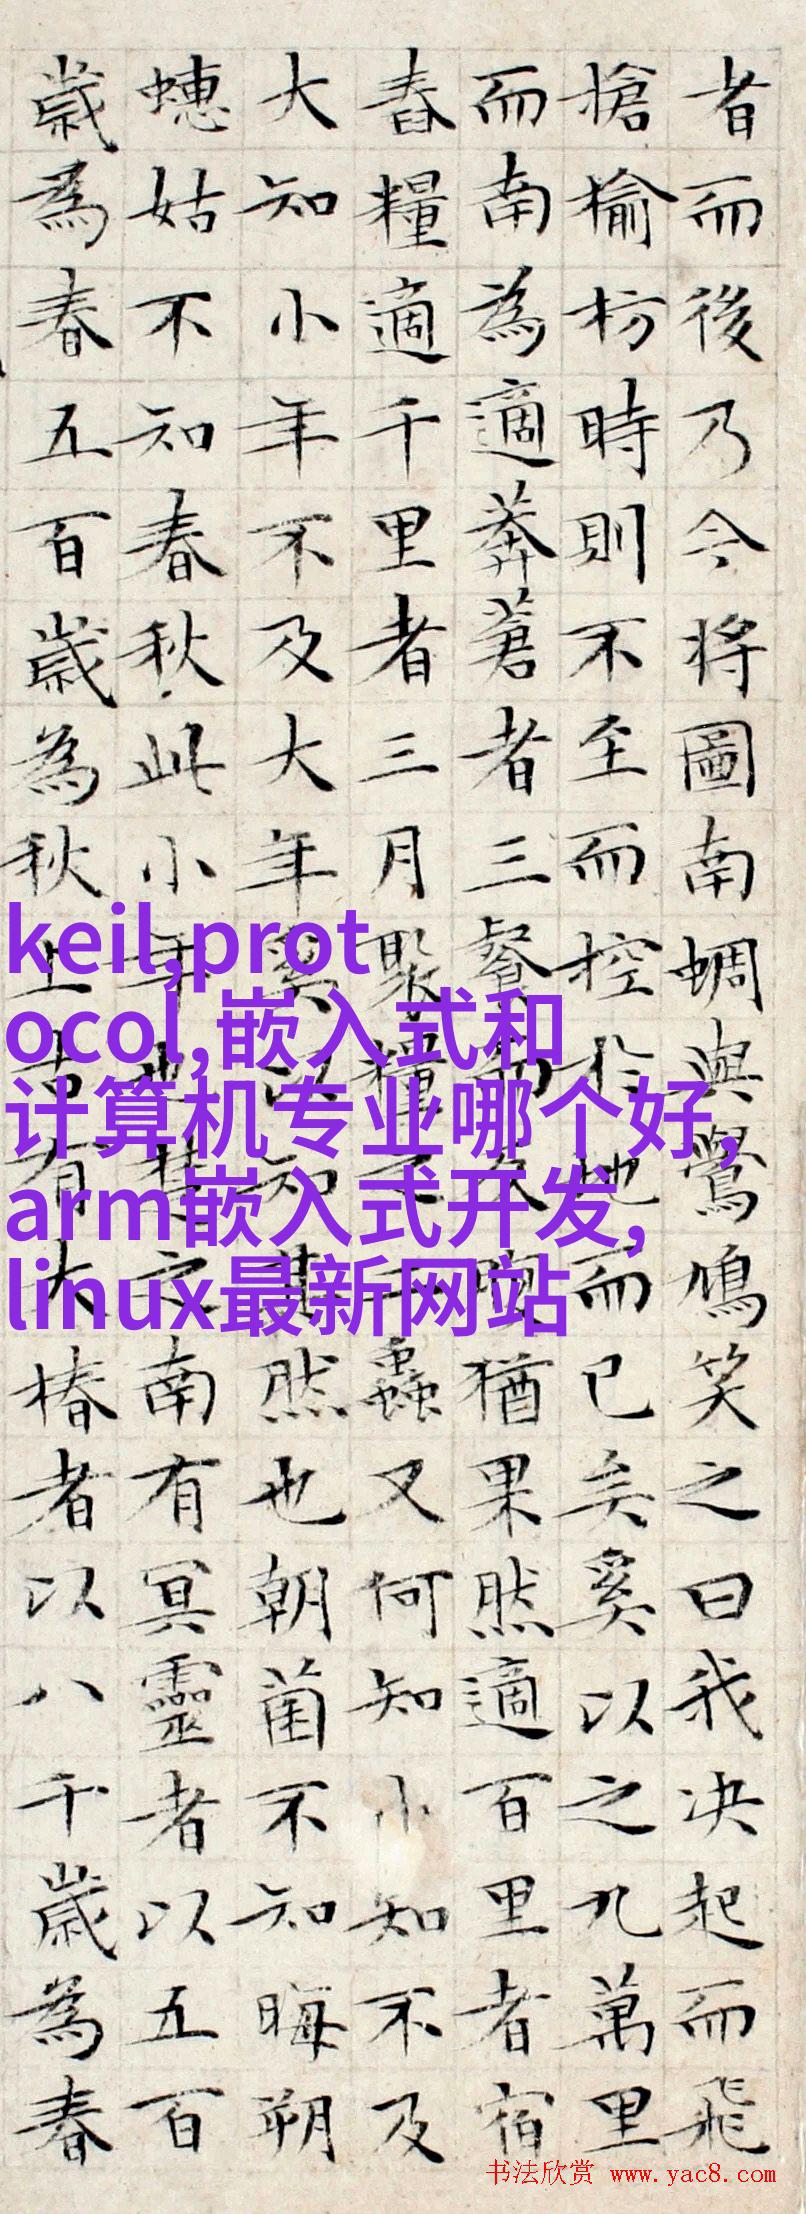 者而後乃今将圖南蜩與鷽鳩笑之曰我决起而飛
搶榆枋時則不至而控於地而已矣奚以之九萬里
而南為適莽蒼者三餐而反腹猶果然適百里者宿
舂糧適千里者三月聚糧之二蟲又何知小知不及
大知小年不及大年奚以知其然也朝菌不知晦朔
蟪姑不知春秋此小年也楚之南有冥靈者以五百
歲為春五百歲為秋上古有大椿者以八千歲為春
keil,prot
ocol,嵌入式和
计算机专业哪个好,
arm嵌入式开发,
linux最新网站
书法欣赏 www.yac8.com